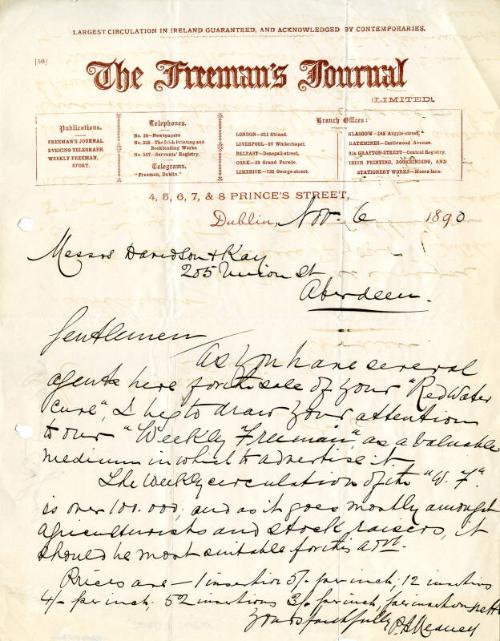 LARGEST CIRCULATION IN IRELAND GUARANTEED, AND ACKNOWLEDGED BY CONTEMPORARIES.
The Freeman's Journal
(LIMITED).
Publications.
FREEMAN'S JOURNAL
EVENING TELEGRAPH
WEEKLY FREEMAN.
SPORT.
Telephones.
No. 30—Newspapers
Bookbinding Works.
No. 147—Servants' Registry.
Telegrams.
"Freeman, Dublin."
Branch Offices:
LONDON—211 Strand.
LIVERPOOL—27 Whitechapel.
BELFAST—Donegall-street.
CORK—28 Grand Parade.
LIMERICK—125 George-street.
GLASGOW—146 Argyle-street.
RATHMINES—Castlewood Avenue.
GRAFTON-STREET—Central Registry.
IRISH PRINTING, BOOKBINDING, AND
STATIONERY WORKS—
4, 5, 6, 7, & 8 PRINCE'S STREET,
Dublin, Nov. 6 1890
Messrs Davidson & Kay
205 Union St
Aberdeen.
Gentlemen
As you have several
agents here for the sale of your "Red Water
Cure", I beg to draw your attention
to our "Weekly Freeman", as a valuable
medium in which to advertise it
The weekly circulation of the "W. F."
is over 100.000, and as it goes mostly amongst
agriculturists and stock raisers, it
should be most suitable for this advt.
Prices are – 1 insertion 5/- per inch, 12 insertions
4/- per inch. 52 insertions 3/- per inch, per insertion nett
Yours faithfully